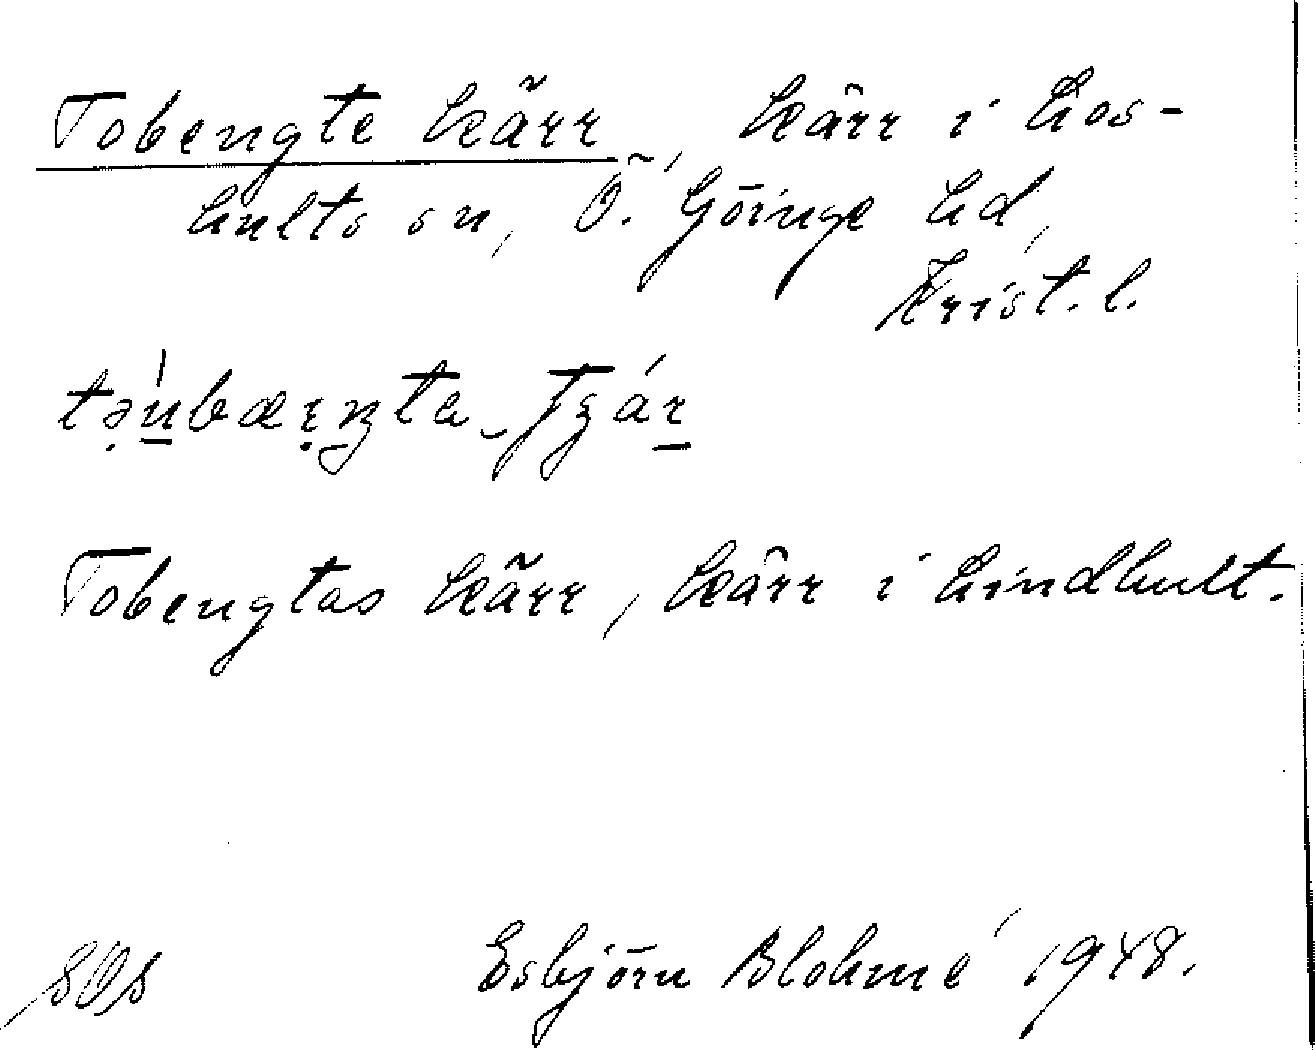 Tobengte kärr, kärr i Hos-
hults sn, Ö. Göinge hd,
Krist. l.
Tobengtas kärr, kärr i Lindhult.
Esbjörn Blohmé 1948.